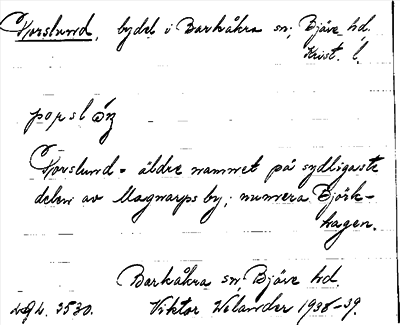 Korslund, bydel i Barkåkra sn; Bjäre hd.
Krist. l.
Korslund = äldre namnet på sydligaste
delen av Magnarps by; numera Björk-
hagen.
Barkåkra sn, Bjäre hd.
Viktor Wilander 1938-39.